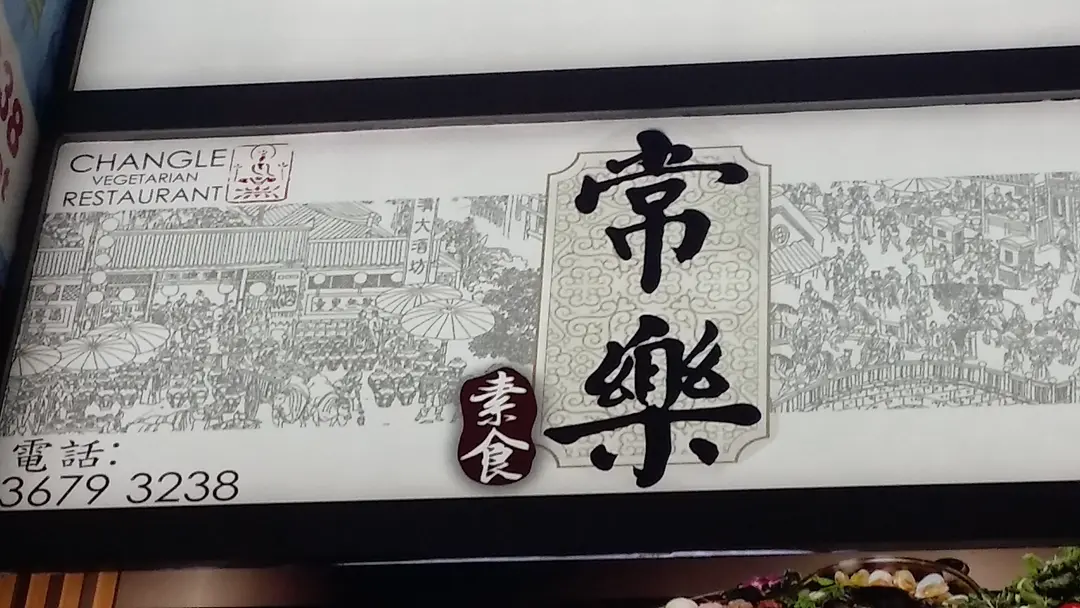 CHANGLE
VEGETARIAN
RESTAURANT
常樂
素食
大酒坊
酒
電話:
3679 3238
38